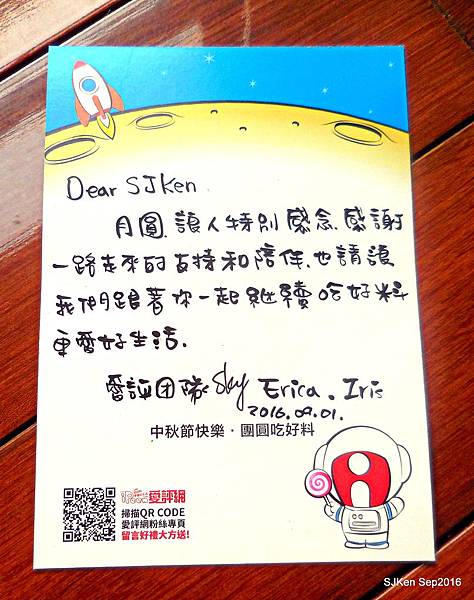 Dear SJKen
月圓,讓人特別感念,感謝
一路走來的支持和陪伴,也請讓
我們跟著你一起繼續吃好料
更愛好生活.
愛評团隊 Sky Erica. Iris
2016.09.01.
中秋節快樂.團圓吃好料
愛評網
掃描QR CODE
愛評網粉絲專頁
留言好禮大方送!
SJKen Sep2016